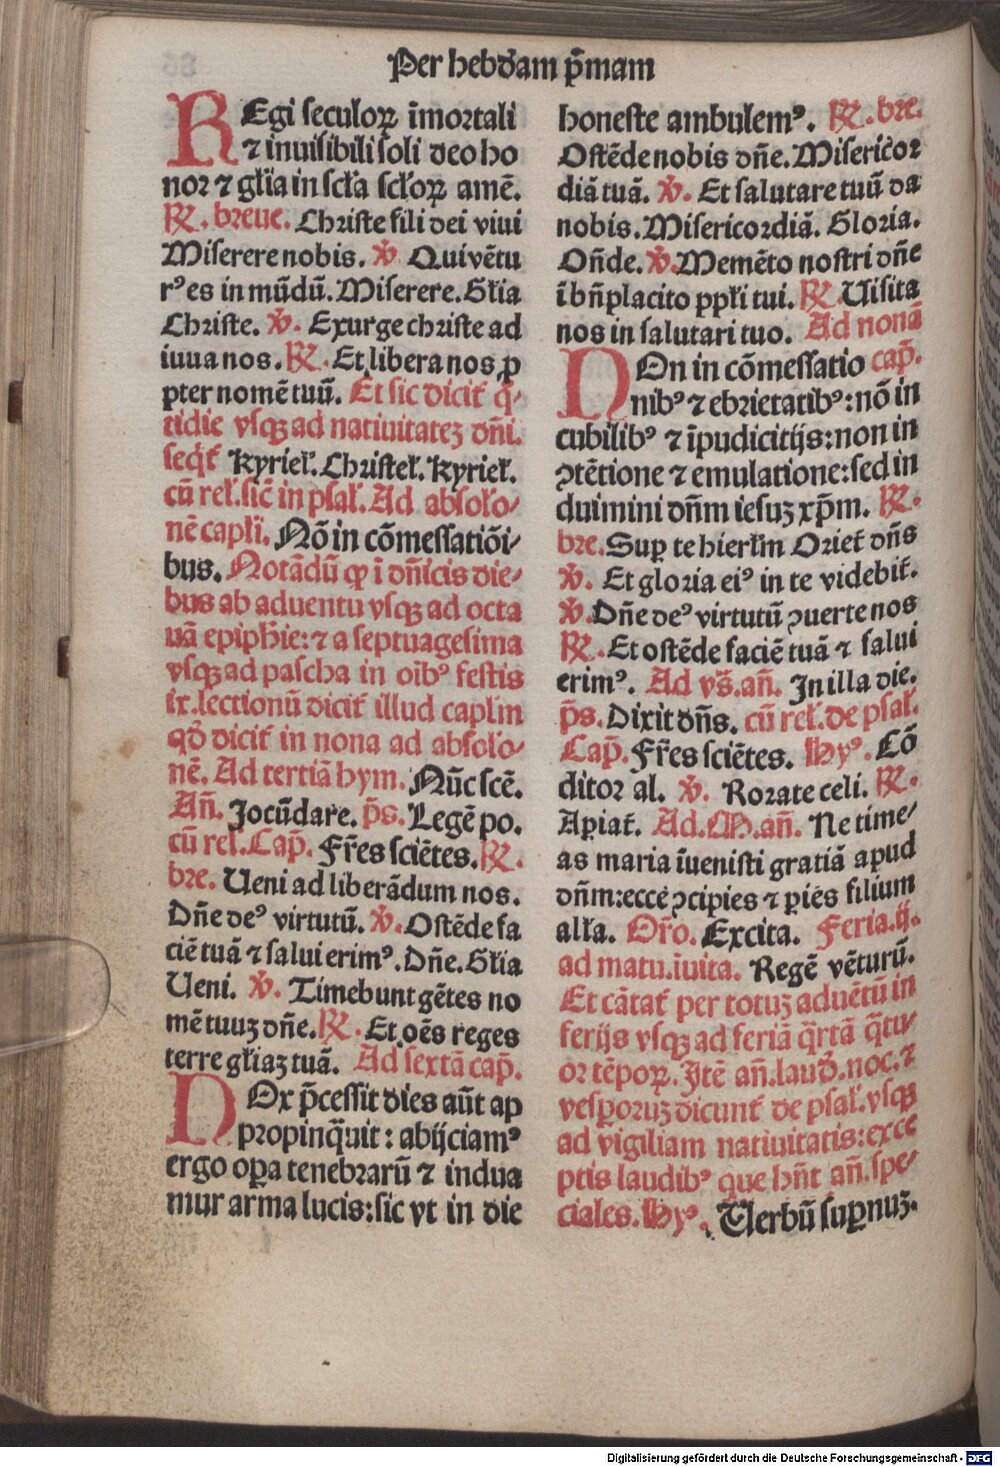 Per hebdam p̄mam
REgi seculoꝝ īmortali
⁊ inuisibili soli deo ho
nor ⁊ gl̄ia in sc̄la sc̄loꝝ amē.
℟. breue. Christe fili dei viui
Miserere nobis. ℣. Qui vētu
rꝰ es in mūdū. Miserere. Gl̄ia
Christe. ℣. Exurge christe ad
iuua nos. ℟. Et libera nos ꝓ
pter nomē tuū. Et sic dicit̄ q̄-
tidie vsqꝫ ad natiuitateꝫ dn̄i.
seq̄t̄ Kyriel̄. Christel̄. Kyriel̄.
cū rel̄. sic̄ in psal̄. Ad absolo-
nē capl̄i. Nō in cōmessatiōi-
bus. Notādū ꝙ ī dn̄icis die-
bus ab aduentu vsqꝫ ad octa
uā epiph̄ie: ⁊ a septuagesima
vsqꝫ ad pascha in oībꝰ festis
ix. lectionū dicit̄ illud capl̄m
qd̄ dicit̄ in nona ad absolo-
nē. Ad tertiā hym. Nūc scē.
An̄. Jocūdare. p̄s. Legē po.
cū rel̄. Cap̄. Fr̄es sciētes. ℟.
bre. Ueni ad liberādum nos.
Dn̄e deꝰ virtutū. ℣. Ostēde fa
ciē tuā ⁊ salui erimꝰ. Dn̄e. Gl̄ia
Ueni. ℣. Timebunt gētes no
mē tuuꝫ dn̄e. ℟. Et oēs reges
terre gl̄iaꝫ tuā. Ad sextā cap̄.
NOx p̄cessit dies aūt ap
propinq̄uit: abijciamꝰ
ergo oꝑa tenebrarū ⁊ indua
mur arma lucis: sic vt in die
honeste ambulemꝰ. ℟. bre.
Ostēde nobis dn̄e. Misericor
diā tuā. ℣. Et salutare tuū da
nobis. Misericordiā. Gloria.
On̄de. ℣. Memēto nostri dn̄e
ī bn̄placito ppl̄i tui. ℟. Uisita
nos in salutari tuo. Ad nonā
NOn in cōmessatio cap̄.
nibꝰ ⁊ ebrietatibꝰ: nō in
cubilibꝰ ⁊ īpudicitijs: non in
ꝯtētione ⁊ emulatione: sed in
duimini dn̄m iesuꝫ xp̄m. ℟.
bre. Suꝑ te hierl̄m Oriet̄ dn̄s
℣. Et gloria eiꝰ in te videbit̄.
℣. Dn̄e deꝰ virtutū ꝯuerte nos
℟. Et ostēde faciē tuā ⁊ salui
erimꝰ. Ad vs̄. an̄. In illa die.
p̄s. Dixit dn̄s. cū rel̄. de psal̄.
Cap̄. Fr̄es sciētes. Hyꝰ. Cō
ditor al. ℣. Rorate celi. ℟.
Aꝑiat̄. Ad. M. an̄. Ne time-
as maria īuenisti gratiā apud
dn̄m: ecce ꝯcipies ⁊ ꝑies filium
all̄a. Or̄o. Excita. Feria. ij.
ad matu. īuita. Regē vēturū.
Et cātat̄ per totuꝫ aduētū in
ferijs vsqꝫ ad feriā q̄rtā q̄tu-
or tēpoꝝ. Itē an̄. laud̄. noc. ⁊
vesꝑoruꝫ dicunt̄ de psal̄. vsqꝫ
ad vigiliam natiuitatis: exce
ptis laudibꝰ que hn̄t an̄. spe-
ciales. Hyꝰ. Uerbū suꝑnuꝫ.
Digitalisierung gefördert durch die Deutsche Forschungsgemeinschaft - DFG